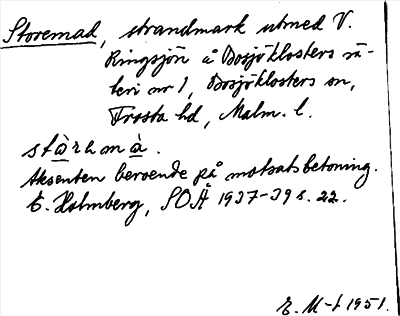 Storemad, strandmark utmed V.
Ringsjön å Bosjöklosters sä-
teri nr 1, Bosjöklosters sn,
Frosta hd, Malm. l.
stàrəmà.
Aksenten beroende på motsatsbetoning.
E. Holmberg, SOÅ 1937-39 s. 22.
E. M-t 1951.